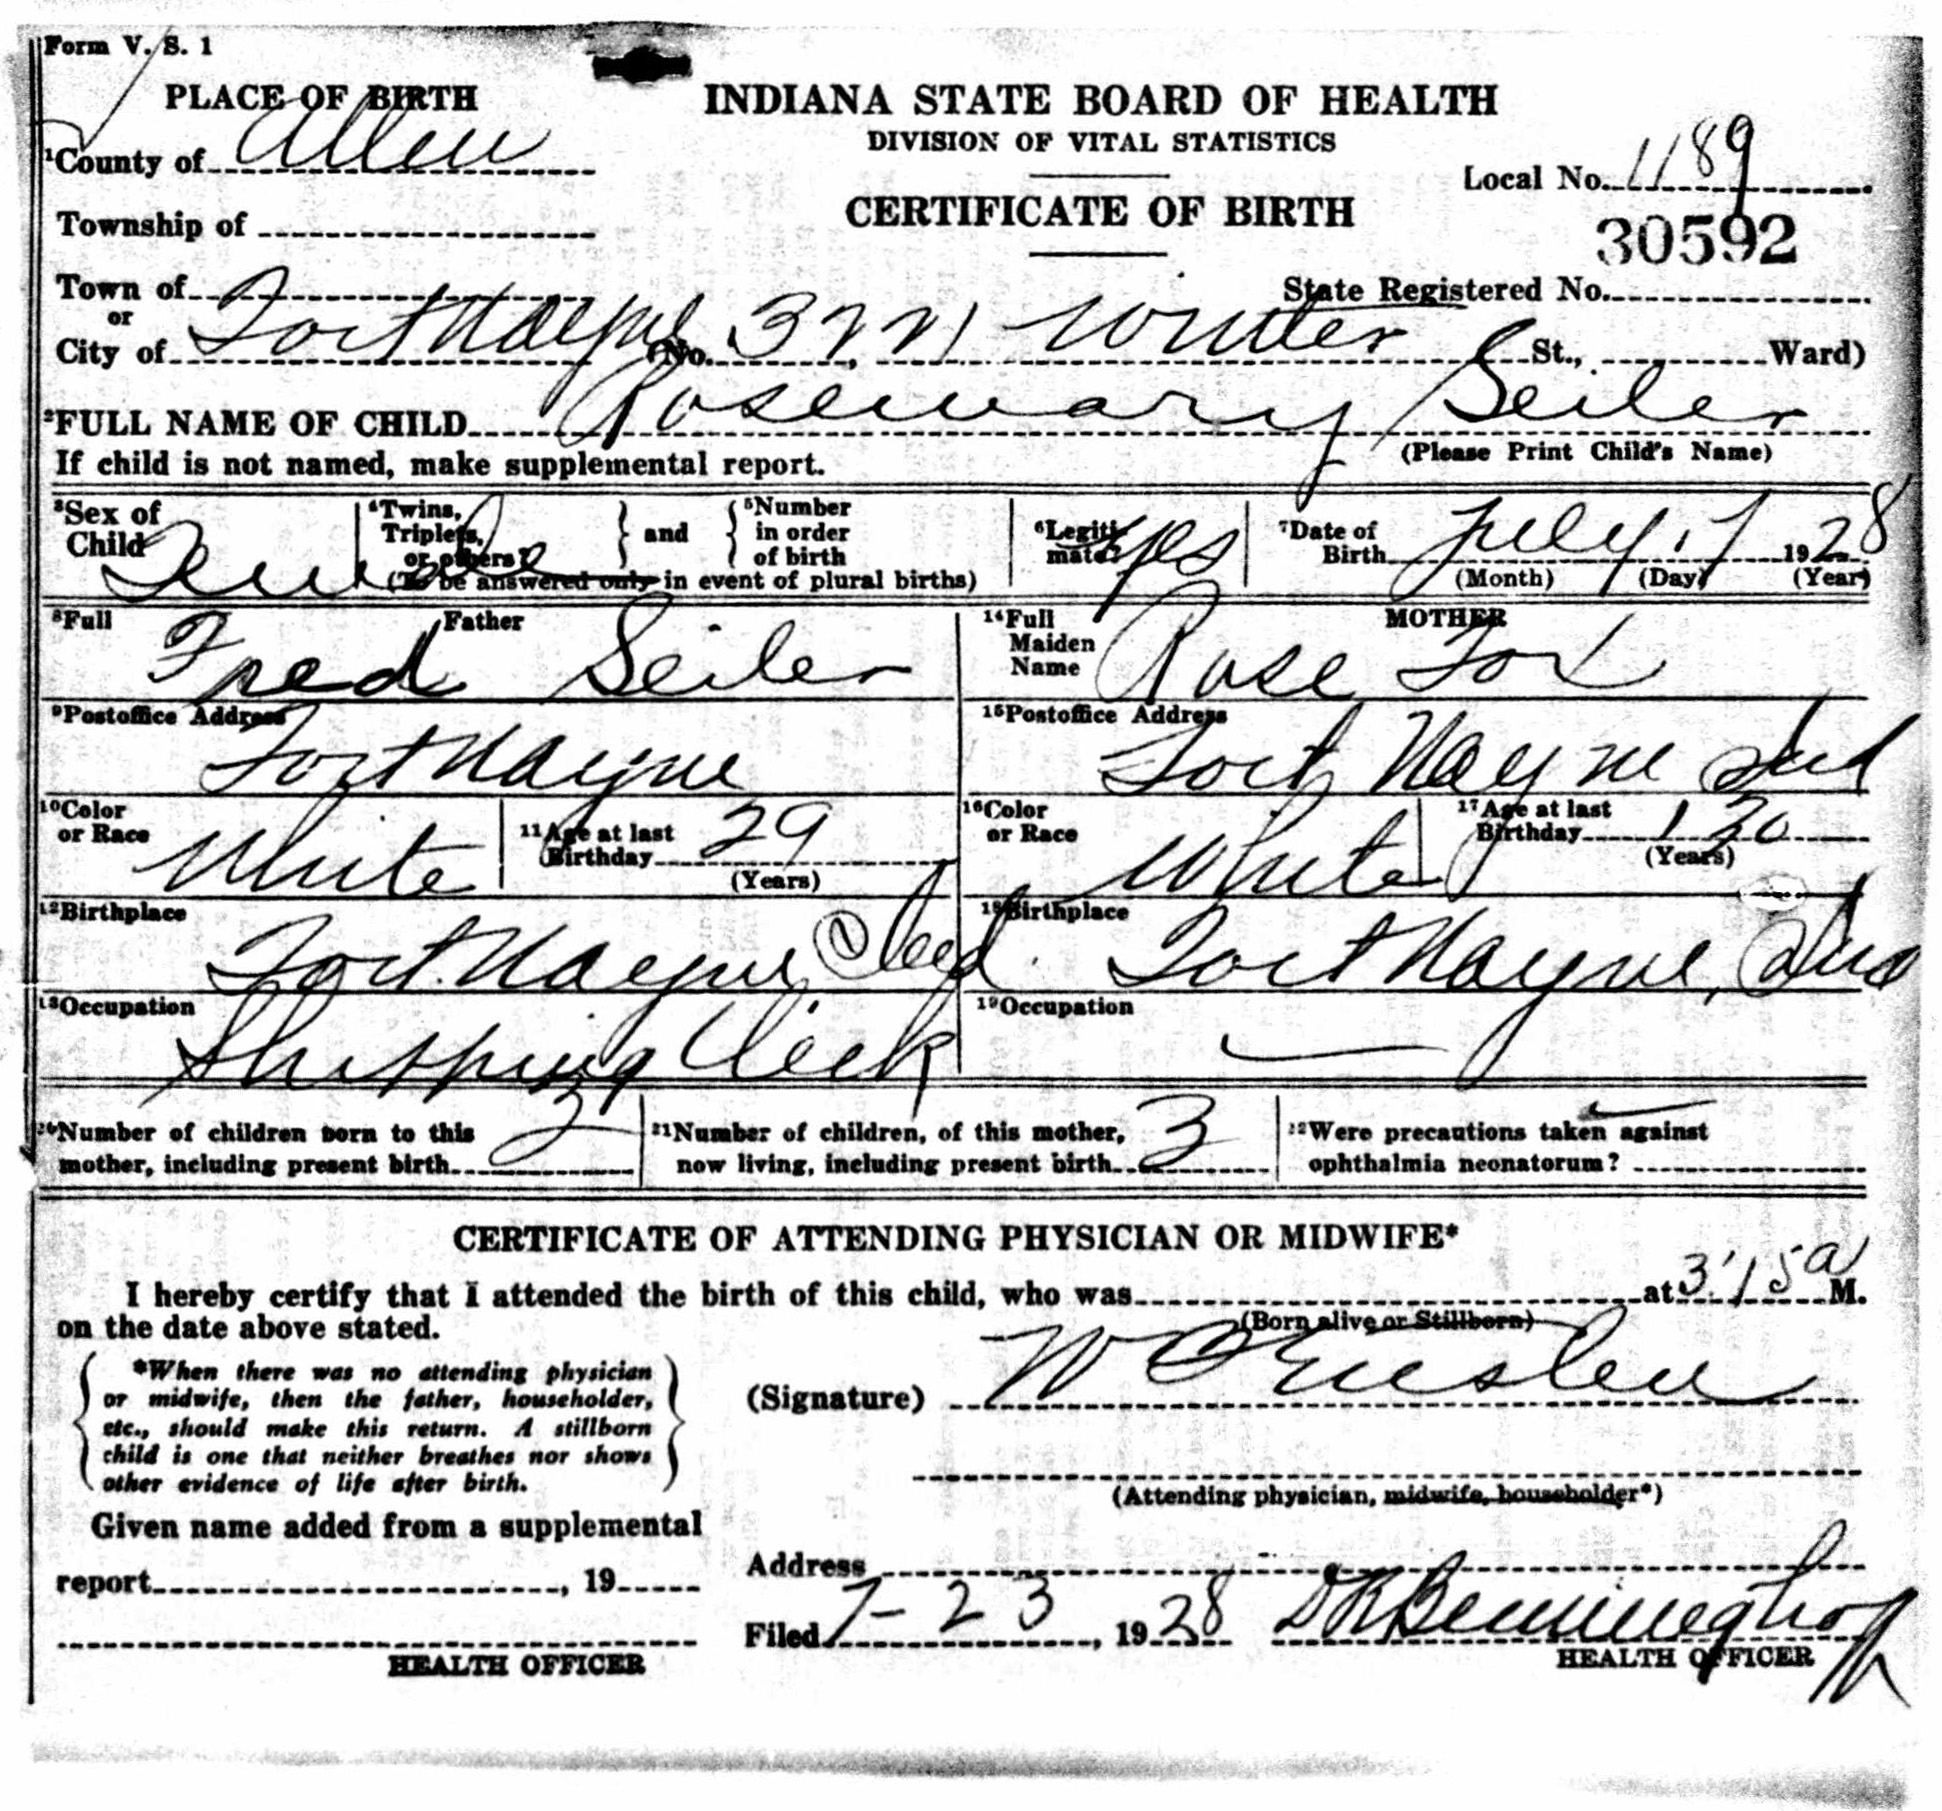 Form V. S. 1
PLACE OF BIRTH
INDIANA STATE BOARD OF HEALTH
DIVISION OF VITAL STATISTICS
¹County of Allen
Local No. 1189
CERTIFICATE OF BIRTH
Township of
30592
Town of
State Registered No.
or
City of Fort Wayne (No. 3221 Winter St., Ward)
²FULL NAME OF CHILD Rosemary Seiler
(Please Print Child's Name)
If child is not named, make supplemental report.
³Sex of Child Female
⁴Twins, Triplets, or others? } and { ⁵Number in order of birth
(To be answered only in event of plural births)
⁶Legitimate? yes
⁷Date of Birth July 17 1928
(Month) (Day) (Year)
⁸Full Father
Fred Seiler
¹⁴Full Maiden Name MOTHER
Rose Fox
⁹Postoffice Address
Fort Wayne
¹⁵Postoffice Address
Fort Wayne Ind
¹⁰Color or Race White
¹¹Age at last Birthday 29
(Years)
¹⁶Color or Race White
¹⁷Age at last Birthday 30
(Years)
¹²Birthplace
Fort Wayne Ind.
¹⁸Birthplace
Fort Wayne, Ind
¹³Occupation
Shipping Clerk
¹⁹Occupation
²⁰Number of children born to this
mother, including present birth
²¹Number of children, of this mother,
now living, including present birth 3
²²Were precautions taken against
ophthalmia neonatorum?
CERTIFICATE OF ATTENDING PHYSICIAN OR MIDWIFE*
I hereby certify that I attended the birth of this child, who was at 3:15 a M.
(Born alive or Stillborn)
on the date above stated.
*When there was no attending physician
or midwife, then the father, householder,
etc., should make this return. A stillborn
child is one that neither breathes nor shows
other evidence of life after birth.
(Signature) W
(Attending physician, midwife, householder*)
Given name added from a supplemental
report , 19
HEALTH OFFICER
Address
Filed 7-23, 1928 Benninghoff
HEALTH OFFICER